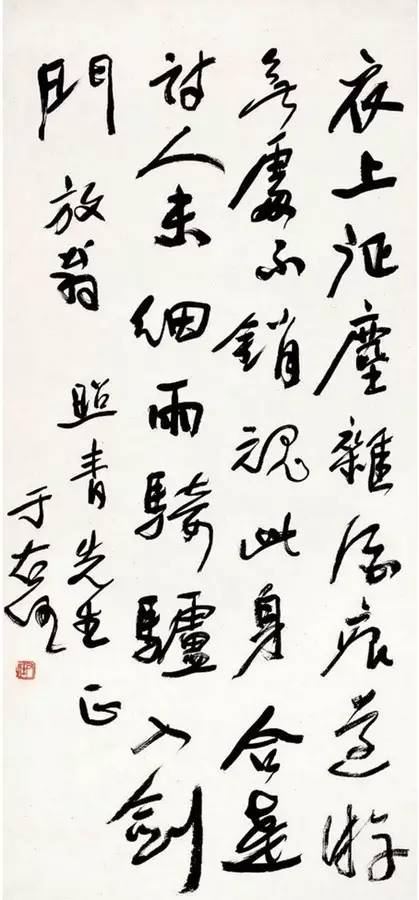 衣上征塵雜酒痕遠游
無處不銷魂此身合是
詩人未細雨騎驢入劍
門 放翁 照青先生正
于右任